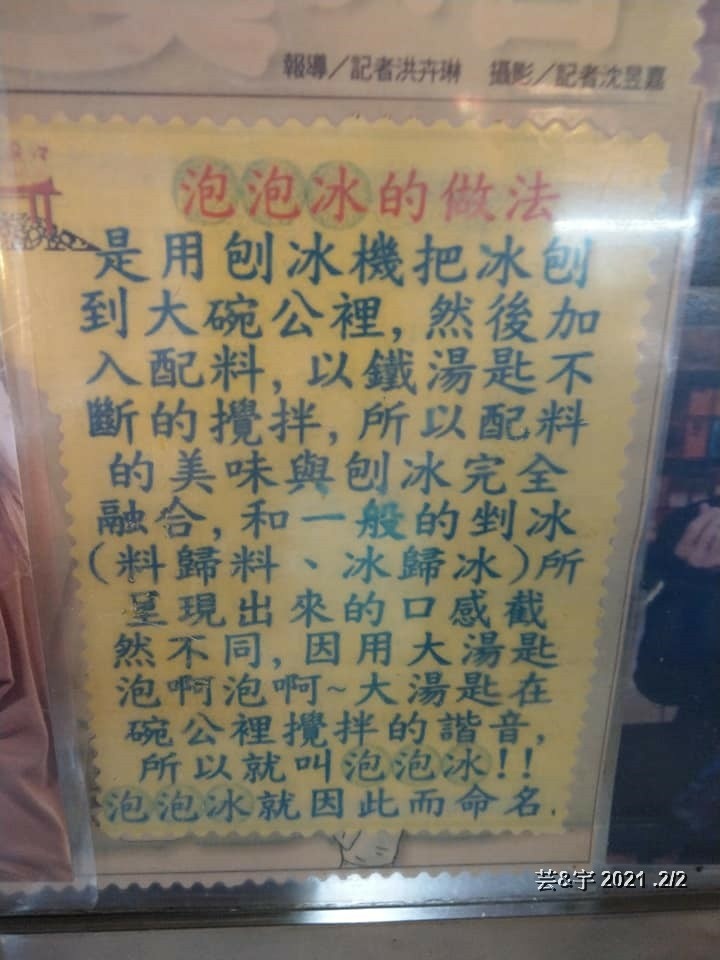 報導／記者洪卉琳 攝影／記者沈昱嘉
泡泡冰的做法
是用刨冰機把冰刨
到大碗公裡, 然後加
入配料, 以鐵湯匙不
斷的攪拌, 所以配料
的美味與刨冰完全
融合, 和一般的剉冰
(料歸料、冰歸冰)所
呈現出來的口感截
然不同, 因用大湯匙
泡啊泡啊~大湯匙在
碗公裡攪拌的諧音,
所以就叫泡泡冰!!
泡泡冰就因此而命名.
芸&宇 2021 .2/2